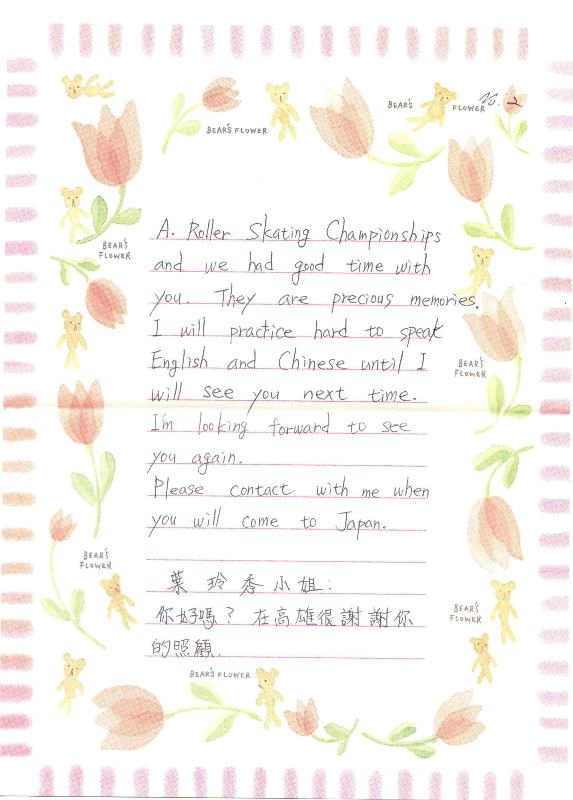 No. 2
BEAR'S FLOWER
BEAR'S FLOWER
BEAR'S FLOWER
A. Roller Skating Championships
and we had good time with
you. They are precious memories.
I will practice hard to speak
English and Chinese until I
will see you next time.
I'm looking forward to see
you again.
Please contact with me when
you will come to Japan.
BEAR'S FLOWER
BEAR'S FLOWER
葉玲秀小姐:
你好嗎? 在高雄很謝謝你
的照顧.
BEAR'S FLOWER
BEAR'S FLOWER